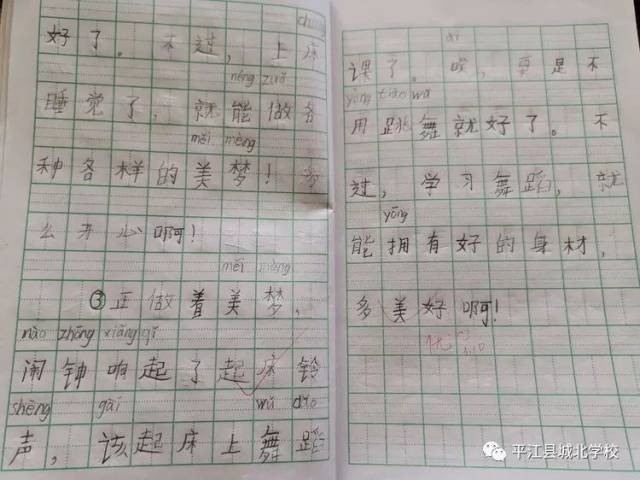 chuáng
好了。不过，上床
néng zuò
睡觉了，就能做各
měi mèng
种各样的美梦！多
么开心啊！
měi mèng
③正做着美梦，
nào zhōng xiǎng qǐ
闹钟响起了起床铃
shēng gāi wǔ dǎo
声，该起床上舞蹈
ài
课了。唉，要是不
yòng tiào wǔ
用跳舞就好了。不
过，学习舞蹈，就
yōng
能拥有好的身材，
多美好啊！
优
平江县城北学校